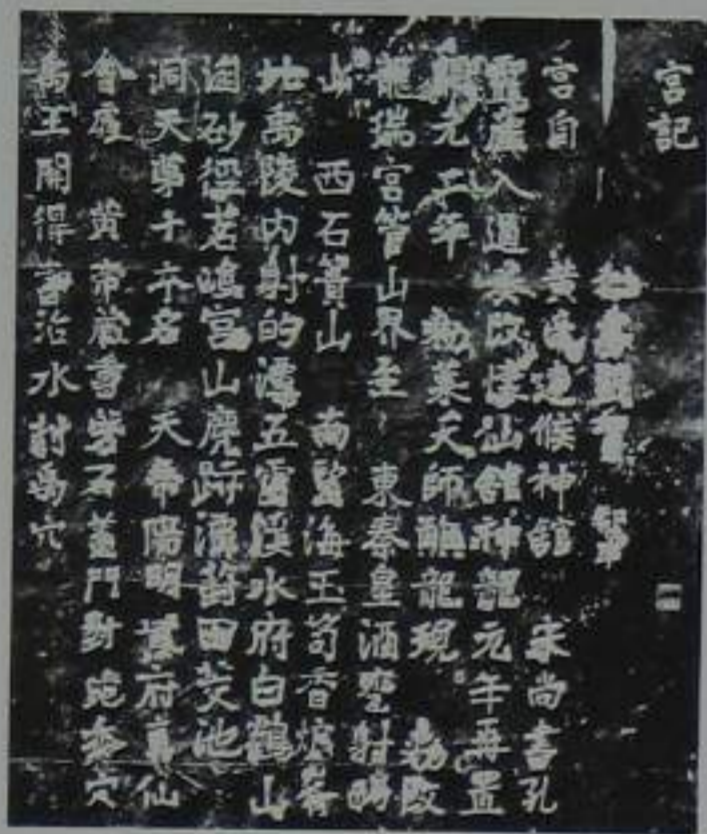 宮記
宮自 黃帝建候神館 宋尚書孔
靈產入道奏改懷仙館神龍元年再置
開元二年 敕葉天師醮龍現 敕改
龍瑞宮管山界至 東秦皇酒甕射的
山 西石簣山 南望海玉笥香爐峯
北禹陵内射的潭五雲溪水府白鶴山
淘砂徑茗塢宮山鹿跡潭葑田茭池
洞天第十本名 天帝陽明紫府真仙
會處 黃帝藏書磐石蓋門封宛委穴
禹王開得書治水封禹穴